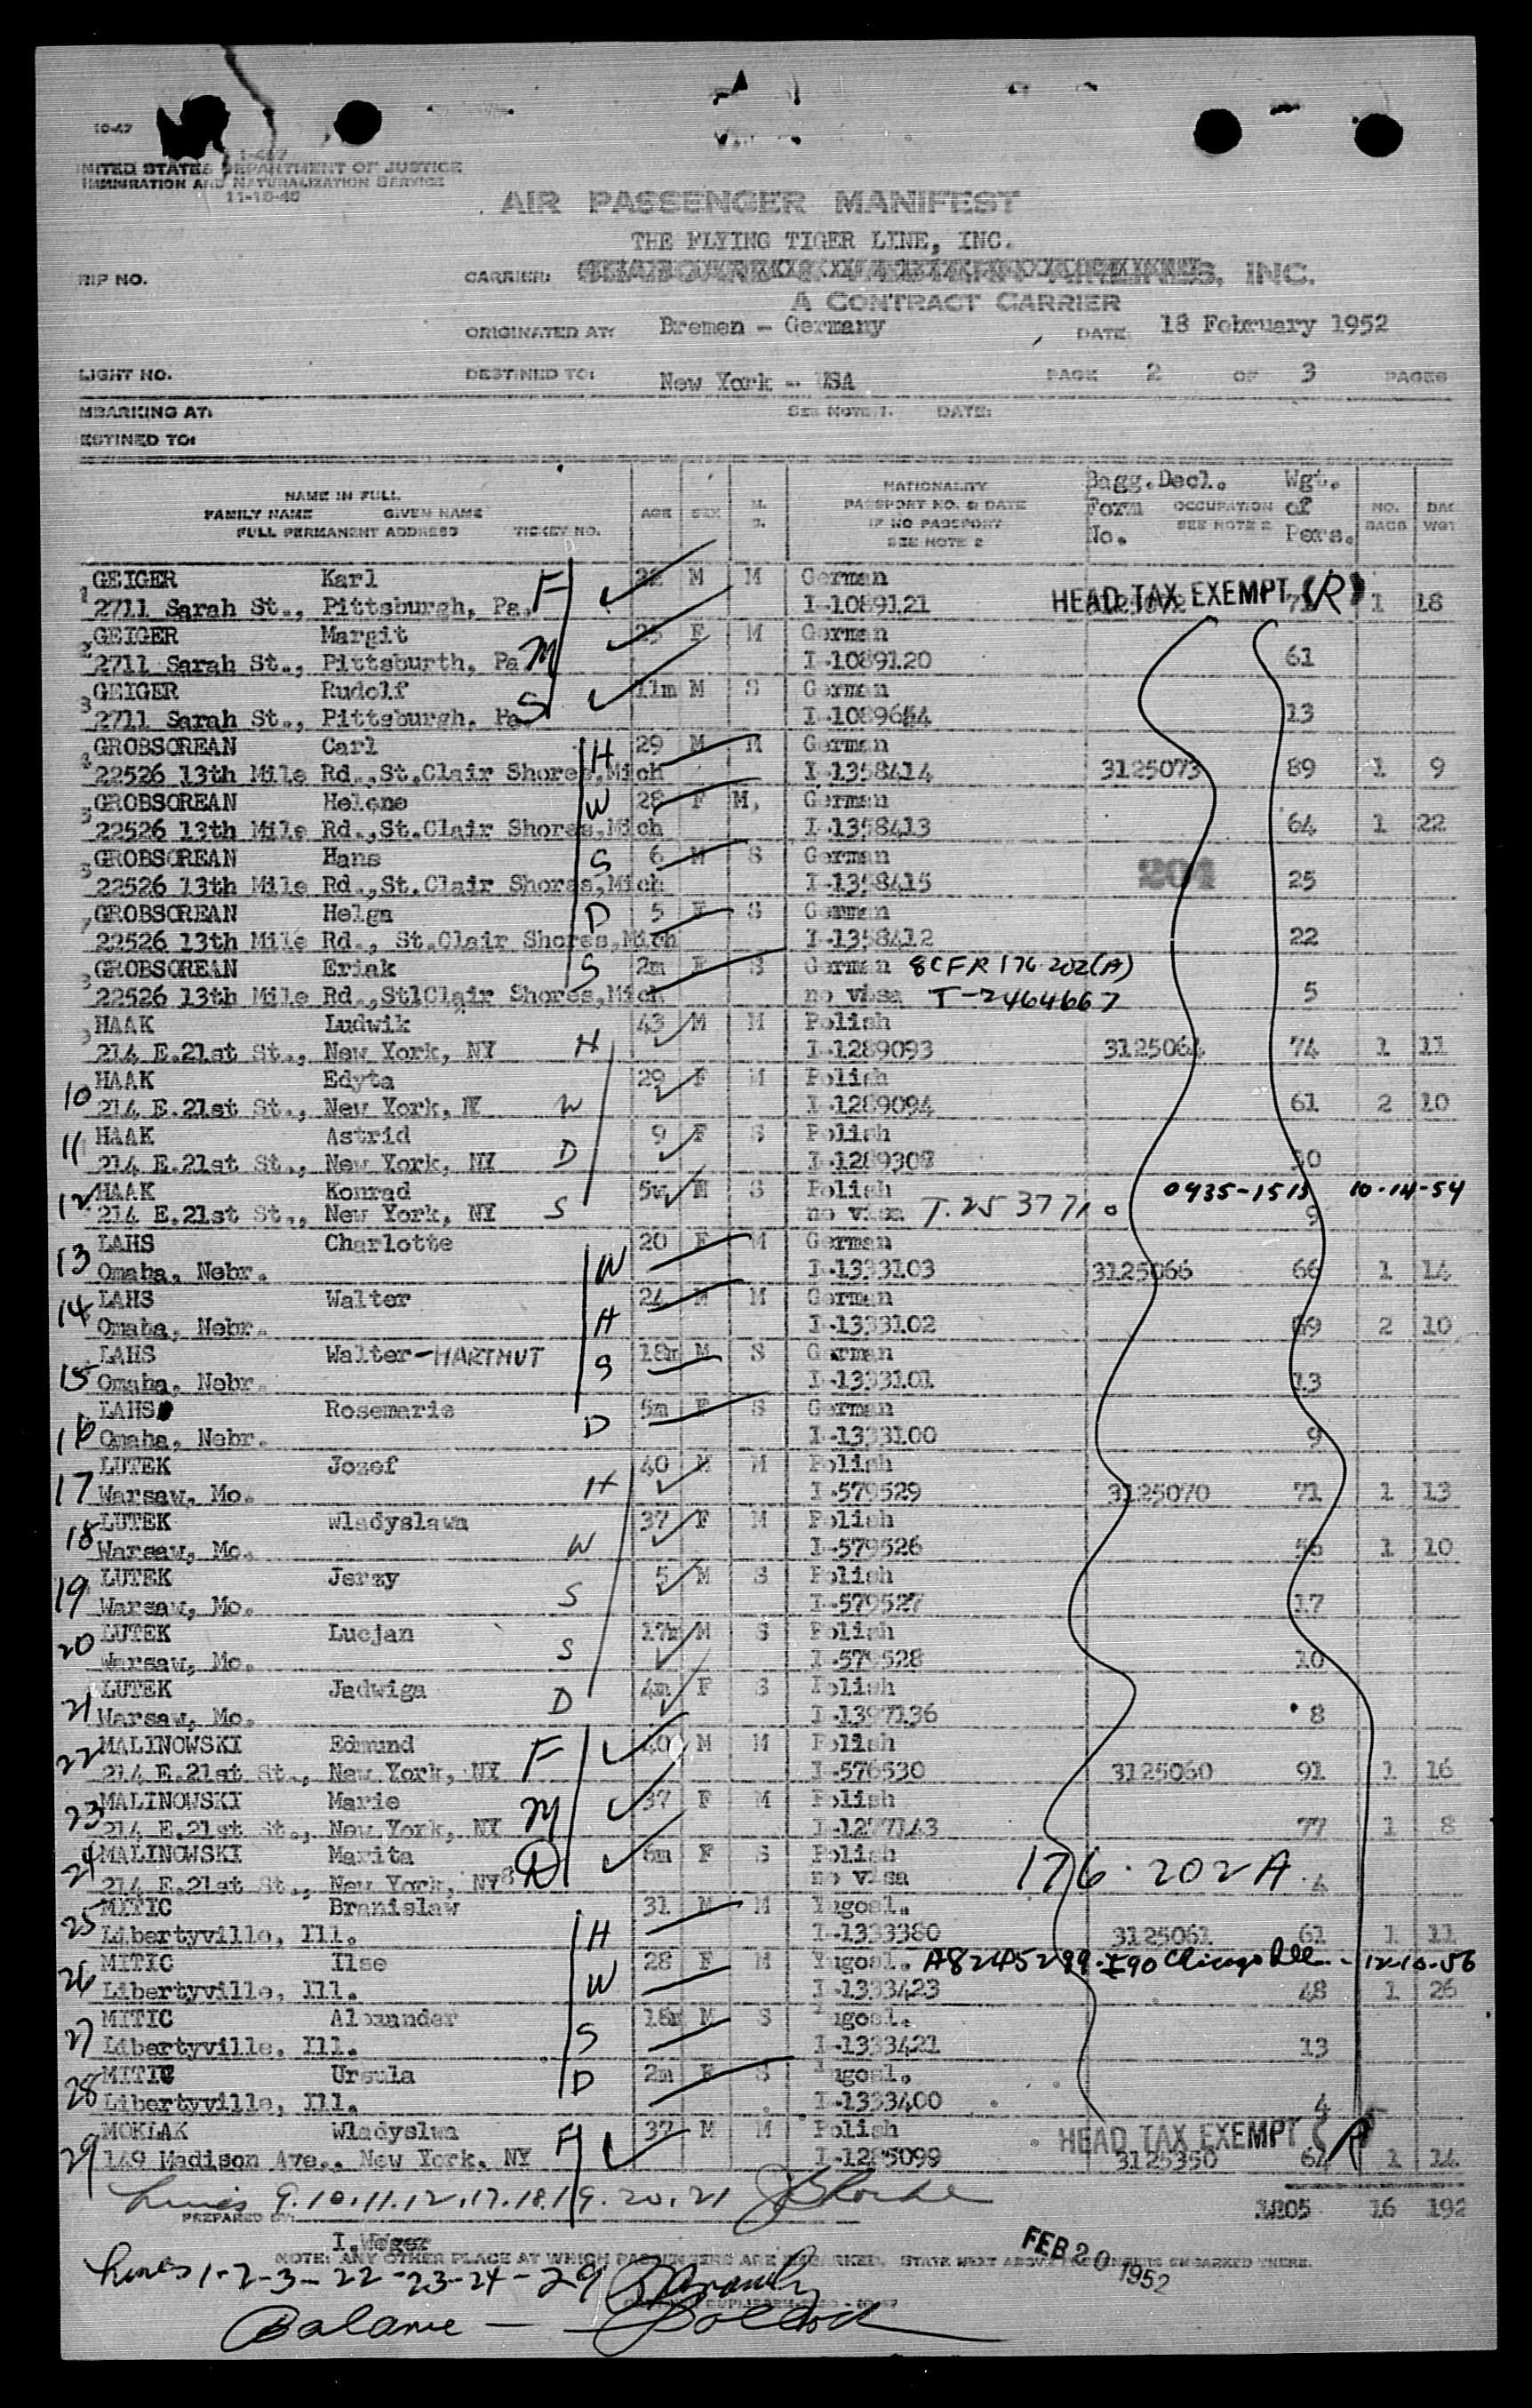 10-47
I-467
UNITED STATES DEPARTMENT OF JUSTICE
IMMIGRATION AND NATURALIZATION SERVICE
11-10-46
AIR PASSENGER MANIFEST
THE FLYING TIGER LINE, INC.
RIP NO. CARRIER: AIRLINES, INC.
A CONTRACT CARRIER
ORIGINATED AT: Bremen - Germany DATE 18 February 1952
LIGHT NO. DESTINED TO: New York - USA PAGE 2 OF 3 PAGES
MBARKING AT: SEE NOTE 1. DATE:
ESTINED TO:
NAME IN FULL
FAMILY NAME GIVEN NAME
FULL PERMANENT ADDRESS TICKET NO.
AGE SEX M. S.
NATIONALITY
PASSPORT NO. & DATE
IF NO PASSPORT
SEE NOTE 2
Bagg. Decl. Form No.
OCCUPATION SEE NOTE 2
Wgt. of Pers.
NO. BAGS
BAG WGT
1 GEIGER Karl F 22 M M German
2711 Sarah St., Pittsburgh, Pa. I-1089121 HEAD TAX EXEMPT (R) 1 18
2 GEIGER Margit M 25 F M German
2711 Sarah St., Pittsburth, Pa I-1089120 61
3 GEIGER Rudolf S 11m M S German
2711 Sarah St., Pittsburgh, Pa. I-1089654 13
4 GROBSOREAN Carl H 29 M M German
22526 13th Mile Rd.,St.Clair Shores,Mich I-1358414 3125073 89 1 9
5 GROBSOREAN Helene W 28 F M, German
22526 13th Mile Rd.,St.Clair Shores,Mich I-1358413 64 1 22
GROBSOREAN Hans S 6 M S German 204
22526 13th Mile Rd.,St.Clair Shores,Mich I-1358415 25
7 GROBSOREAN Helga D 5 F S German
22526 13th Mile Rd., St.Clair Shores,Mich I-1358412 22
GROBSOREAN Eriak S 2m F S German 8CFR 176-202(A)
22526 13th Mile Rd.,StlClair Shores,Mich no visa T-2464667 5
HAAK Ludwik 43 M M Polish
214 E.21st St., New York, NY H I-1289093 3125064 74 1 11
10 HAAK Edyta 29 F M Polish
214 E.21st St., New York, N W I-1289094 61 2 10
11 HAAK Astrid 9 F S Polish
214 E.21st St., New York, NY D I-1289308 30
12 HAAK Konrad 5w M S Polish 0935-1513 10-14-54
214 E.21st St., New York, NY S no visa T.2537710 9
13 LAHS Charlotte 20 F M German
Omaha, Nebr. W I-1333103 3125066 66 1 14
14 LAHS Walter 24 M M German
Omaha, Nebr. H I-1333102 69 2 10
15 LAHS Walter-HARTMUT 18m M S German
Omaha, Nebr. S I-1333101 13
16 LAHS Rosemarie 5m F S German
Omaha, Nebr. D I-1333100 9
17 LUTEK Jozef 40 M M Polish
Warsaw, Mo. H I-579529 3125070 71 1 13
18 LUTEK Wladyslawa 37 F M Polish
Warsaw, Mo. W I-579526 56 1 10
19 LUTEK Jerzy 5 M S Polish
Warsaw, Mo. S I-579527 17
20 LUTEK Lucjan 17m M S Polish
Warsaw, Mo. S I-579528 10
21 LUTEK Jadwiga 4m F S Polish
Warsaw, Mo. D I-1397136 8
22 MALINOWSKI Edmund F 40 M M Polish
214 E.21st St., New York, NY I-576530 3125060 91 1 16
23 MALINOWSKI Marie M 37 F M Polish
214 E.21st St., New York, NY I-1277143 77 1 8
24 MALINOWSKI Marita D 8m F S Polish
214 E.21st St., New York, NY no visa 176.202A 4
25 MITIC Branislaw 31 M M Yugosl.
Libertyville, Ill. H I-1333380 3125061 61 1 11
26 MITIC Ilse 28 F M Yugosl. A8245299-I90 Chicago Ill. - 12-10-56
Libertyville, Ill. W I-1333423 48 1 26
27 MITIC Alexander 18m M S Yugosl.
Libertyville, Ill. S I-1333421 13
28 MITIC Ursula 2m F S Yugosl.
Libertyville, Ill. D I-1333400 4
29 MOKLAK Wladyslwa 37 M M Polish HEAD TAX EXEMPT (R)
149 Madison Ave., New York, NY I-1285099 3125350 64 1 14
Lines 9.10.11.12.17.18.19.20.21
PREPARED BY: 1205 16 192
I. Weger
NOTE: ANY OTHER PLACE AT WHICH PASSENGERS ARE EMBARKED, STATE NEXT ABOVE PASSENGERS EMBARKED THERE.
FEB 20 1952
Lines 1-2-3-22-23-24-29
Balance -